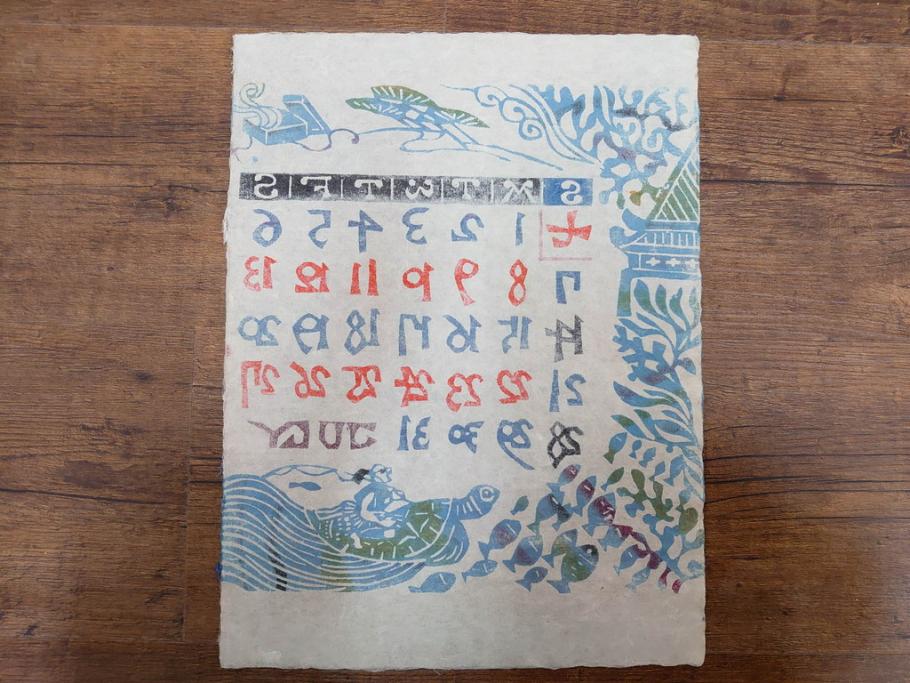 S M T W T F S
七 1 2 3 4 5 6
7 8 9 10 11 12 13
14 15 16 17 18 19 20
21 22 23 24 25 26 27
28 29 30 31 JULY